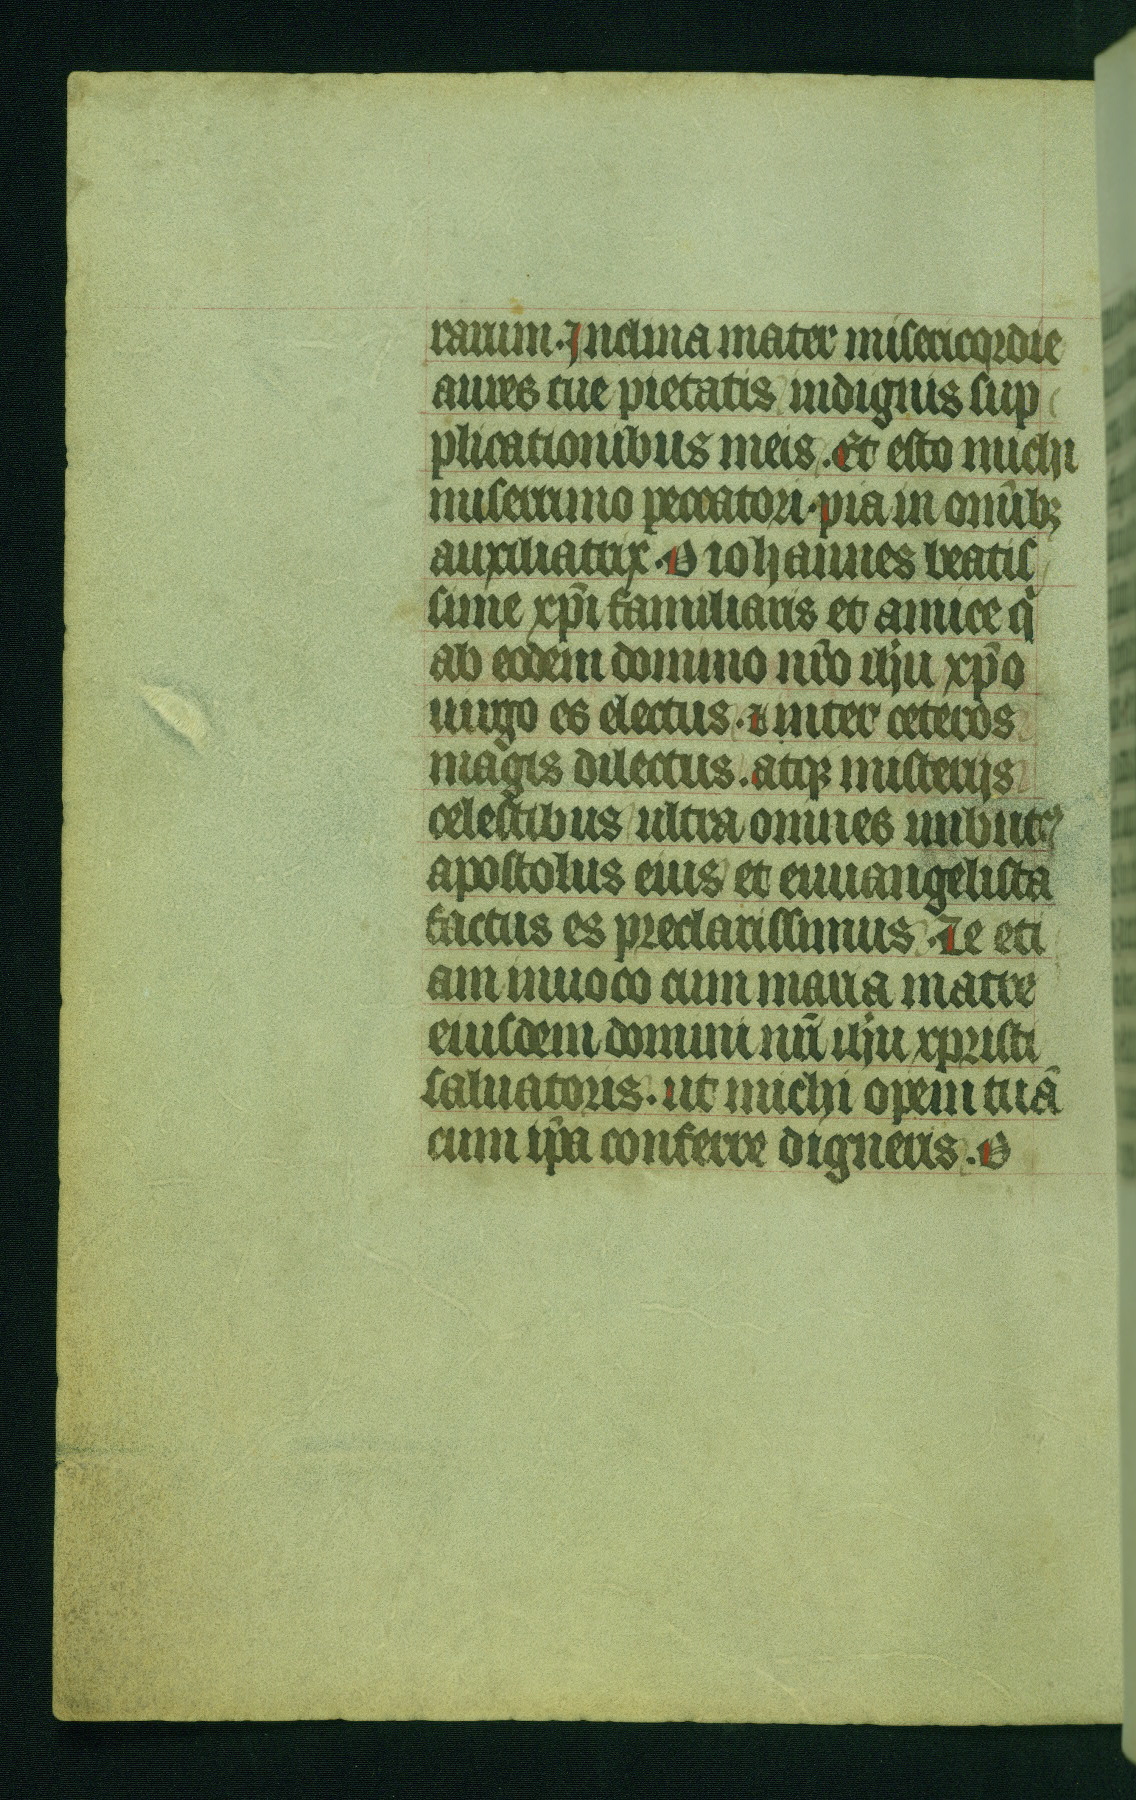 rarum. Inclina mater misericordie
aures tue pietatis indignis sup
plicationibus meis. Et esto michi
miserrimo peccatori. pia in omnibꝫ
auxiliatrix. O iohannes beatis
sime xp̄i familiaris et amice q
ab eodem domino nr̄o ihu xp̄o
uirgo es electus. ⁊ inter ceteros
magis dilectus. atqꝫ misterijs
celestibus ultra omnes inbutꝰ
apostolus eius et euuangelista
factus es preclarissimus. Te eti
am inuoco cum maria matre
eiusdem domini nr̄i ihu xpristi
saluatoris. ut michi opem tuā
cum ip̄a conferre digneris. O